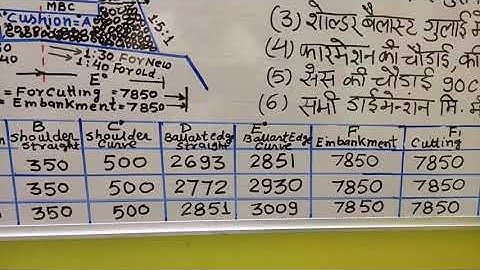 MBC
Cushion=A
1.5:1
1:30 For New
1:40 For old
E°
= For Cutting = 7850
= Embankment = 7850
(3) शोल्डर बैलास्ट गुलाई में
(4) फारमेशन की चौड़ाई, की
(5) सैस की चौड़ाई 900
(6) सभी डाईमेन्शन मि. मे
B shoulder straight C° shoulder curve D Ballast Edge straight E° Ballast Edge curve F Embankment F1 Cutting
350 500 2693 2851 7850 7850
350 500 2772 2930 7850 7850
350 500 2851 3009 7850 7850